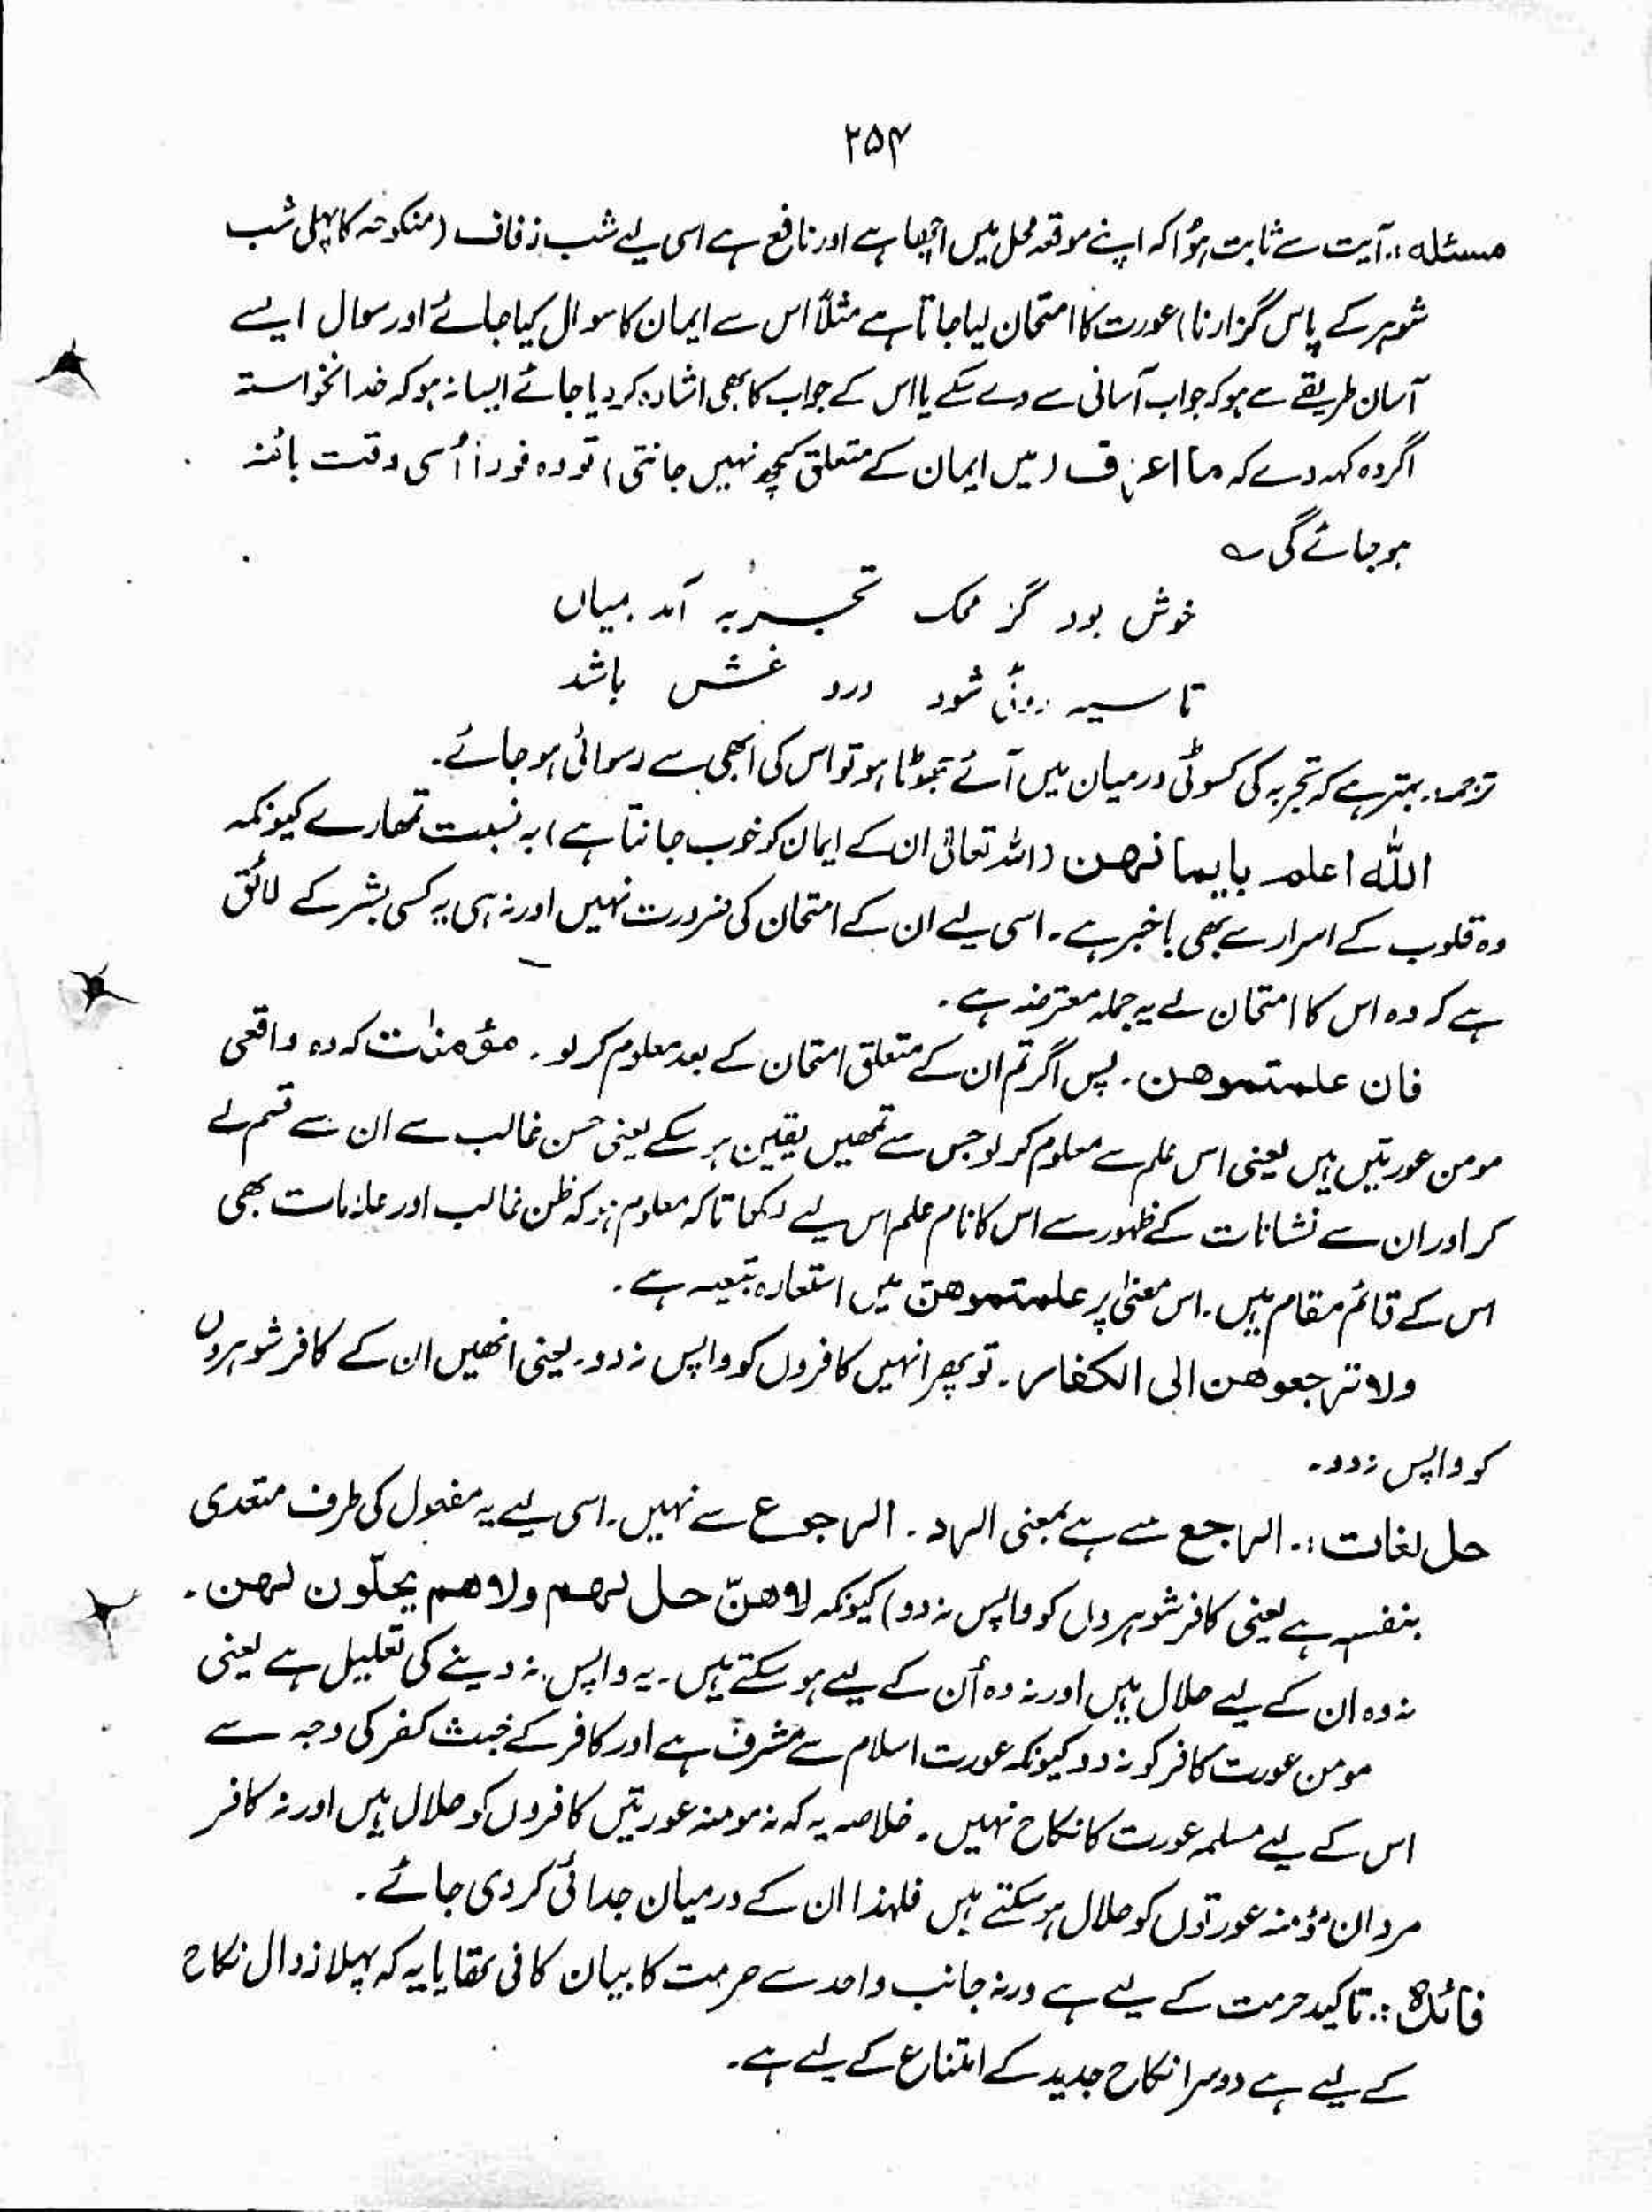 ۲۵۴
مسئلہ :۔ آیت سے ثابت ہؤا کہ اپنے موقعہ محل میں اچھا ہے اور نافع ہے اسی لیے شب زفاف (منکوحہ کا پہلی شب
شوہر کے پاس گزارنا) عورت کا امتحان لیا جاتا ہے مثلاً اس سے ایمان کا سوال کیا جائے اور سوال ایسے
آسان طریقے سے ہو کہ جواب آسانی سے دے سکے یا اس کے جواب کا بھی اشارہ کر دیا جائے ایسا نہ ہو کہ خدانخواستہ
اگر وہ کہہ دے کہ ما اعرف (میں ایمان کے متعلق کچھ نہیں جانتی) تو وہ فوراً اُسی وقت بائنہ
ہو جائے گی ؎
خوش بود گر محک تجربہ آمد بمیاں
تا سیہ روئی شود درو غش باشد
ترجمہ۔ بہتر ہے کہ تجربہ کی کسوٹی درمیان میں آئے جھوٹا ہو تو اس کی ابھی سے رسوائی ہو جائے۔
اللہ اعلم بایمانھن (اللہ تعالیٰ ان کے ایمان کو خوب جانتا ہے) بہ نسبت تمھارے کیونکہ
وہ قلوب کے اسرار سے بھی باخبر ہے۔ اسی لیے ان کے امتحان کی ضرورت نہیں اور نہ ہی یہ کسی بشر کے لائق
ہے کہ وہ اس کا امتحان لے یہ جملہ معترضہ ہے۔
فان علمتموھن۔ پس اگر تم ان کے متعلق امتحان کے بعد معلوم کر لو۔ مؤمنٰت کہ وہ واقعی
مومن عورتیں ہیں یعنی اس علم سے معلوم کر لو جس سے تمھیں یقین ہو سکے یعنی حسن غالب سے ان سے قسم لے
کر اور ان سے نشانات کے ظہور سے اس کا نام علم اس لیے رکھا تاکہ معلوم ہو کہ ظن غالب اور علامات بھی
اس کے قائم مقام ہیں۔ اس معنیٰ پر علمتموھن میں استعارہ تبعیہ ہے۔
ولا ترجعوھن الی الکفار۔ تو پھر انہیں کافروں کو واپس نہ دو۔ یعنی انھیں ان کے کافر شوہروں
کو واپس نہ دو۔
حل لغات :۔ الرجع سے ہے بمعنی الرد۔ الرجوع سے نہیں۔ اسی لیے یہ مفعول کی طرف متعدی
بنفسہ ہے یعنی کافر شوہروں کو واپس نہ دو) کیونکہ لا ھنّ حل لھم ولا ھم یحلّون لھن۔
نہ وہ ان کے لیے حلال ہیں اور نہ وہ اُن کے لیے ہو سکتے ہیں۔ یہ واپس نہ دینے کی تعلیل ہے یعنی
مومن عورت کافر کو نہ دو کیونکہ عورت اسلام سے مشرف ہے اور کافر کے خبث کفر کی وجہ سے
اس کے لیے مسلمہ عورت کا نکاح نہیں۔ خلاصہ یہ کہ نہ مومنہ عورتیں کافروں کو حلال ہیں اور نہ کافر
مرد ان مؤمنہ عورتوں کو حلال ہو سکتے ہیں فلہٰذا ان کے درمیان جدائی کر دی جائے۔
فائدہ :۔ تاکید حرمت کے لیے ہے ورنہ جانب واحد سے حرمت کا بیان کافی تھا یا یہ کہ پہلا زوال نکاح
کے لیے ہے دوسرا نکاح جدید کے امتناع کے لیے ہے۔